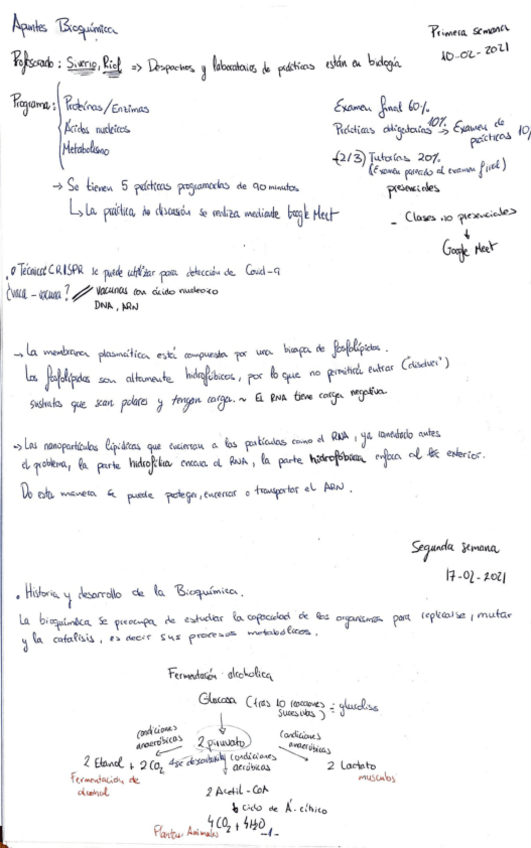 Apuntes Bioquímica
Primera semana
10-02-2021
Profesorado: Siverio, Riol => Despachos y laboratorios de prácticas están en biología
Programa: Proteínas/Enzimas
Ácidos nucleicos
Metabolismo
Examen final 60%
Prácticas obligatorias 10% → Examen de prácticas 10%
(2/3) Tutorías 20%
(Examen parecido al examen final)
presenciales
→ Se tienen 5 prácticas programadas de 90 minutos
↳ La práctica de discusión se realiza mediante Google Meet
- Clases no presenciales
↓
Google Meet
• Técnicas CRISPR se puede utilizar para detección de Covid-9
¿vaca - vacuna? // vacunas con ácido nucleico
DNA, ARN
→ La membrana plasmática está compuesta por una bicapa de fosfolípidos.
Los fosfolípidos son altamente hidrofóbicos, por lo que no permitirá entrar ("disolver")
sustratos que sean polares y tengan carga. ~ El RNA tiene carga negativa
→ Las nanopartículas lipídicas que encierran a las partículas como el RNA, ya comentado antes
el problema, la parte hidrofílica encara al RNA, la parte hidrofóbica enfoca al exterior.
De esta manera se puede proteger, encerrar o transportar el ARN.
Segunda semana
17-02-2021
• Historia y desarrollo de la Bioquímica.
La bioquímica se preocupa de estudiar la capacidad de los organismos para replicarse, mutar
y la catálisis, es decir sus procesos metabólicos.
Fermentación alcohólica
Glucosa (tras 10 reacciones sucesivas) = glucolisis
condiciones anaeróbicas
2 piruvato
condiciones anaeróbicas
2 Etanol + 2 CO2
condiciones aeróbicas
2 Lactato
Fermentación de alcohol
músculos
2 Acetil-CoA
↓ Ciclo de Á. cítrico
4 CO2 + 4 H2O
Plantas Animales
-1-